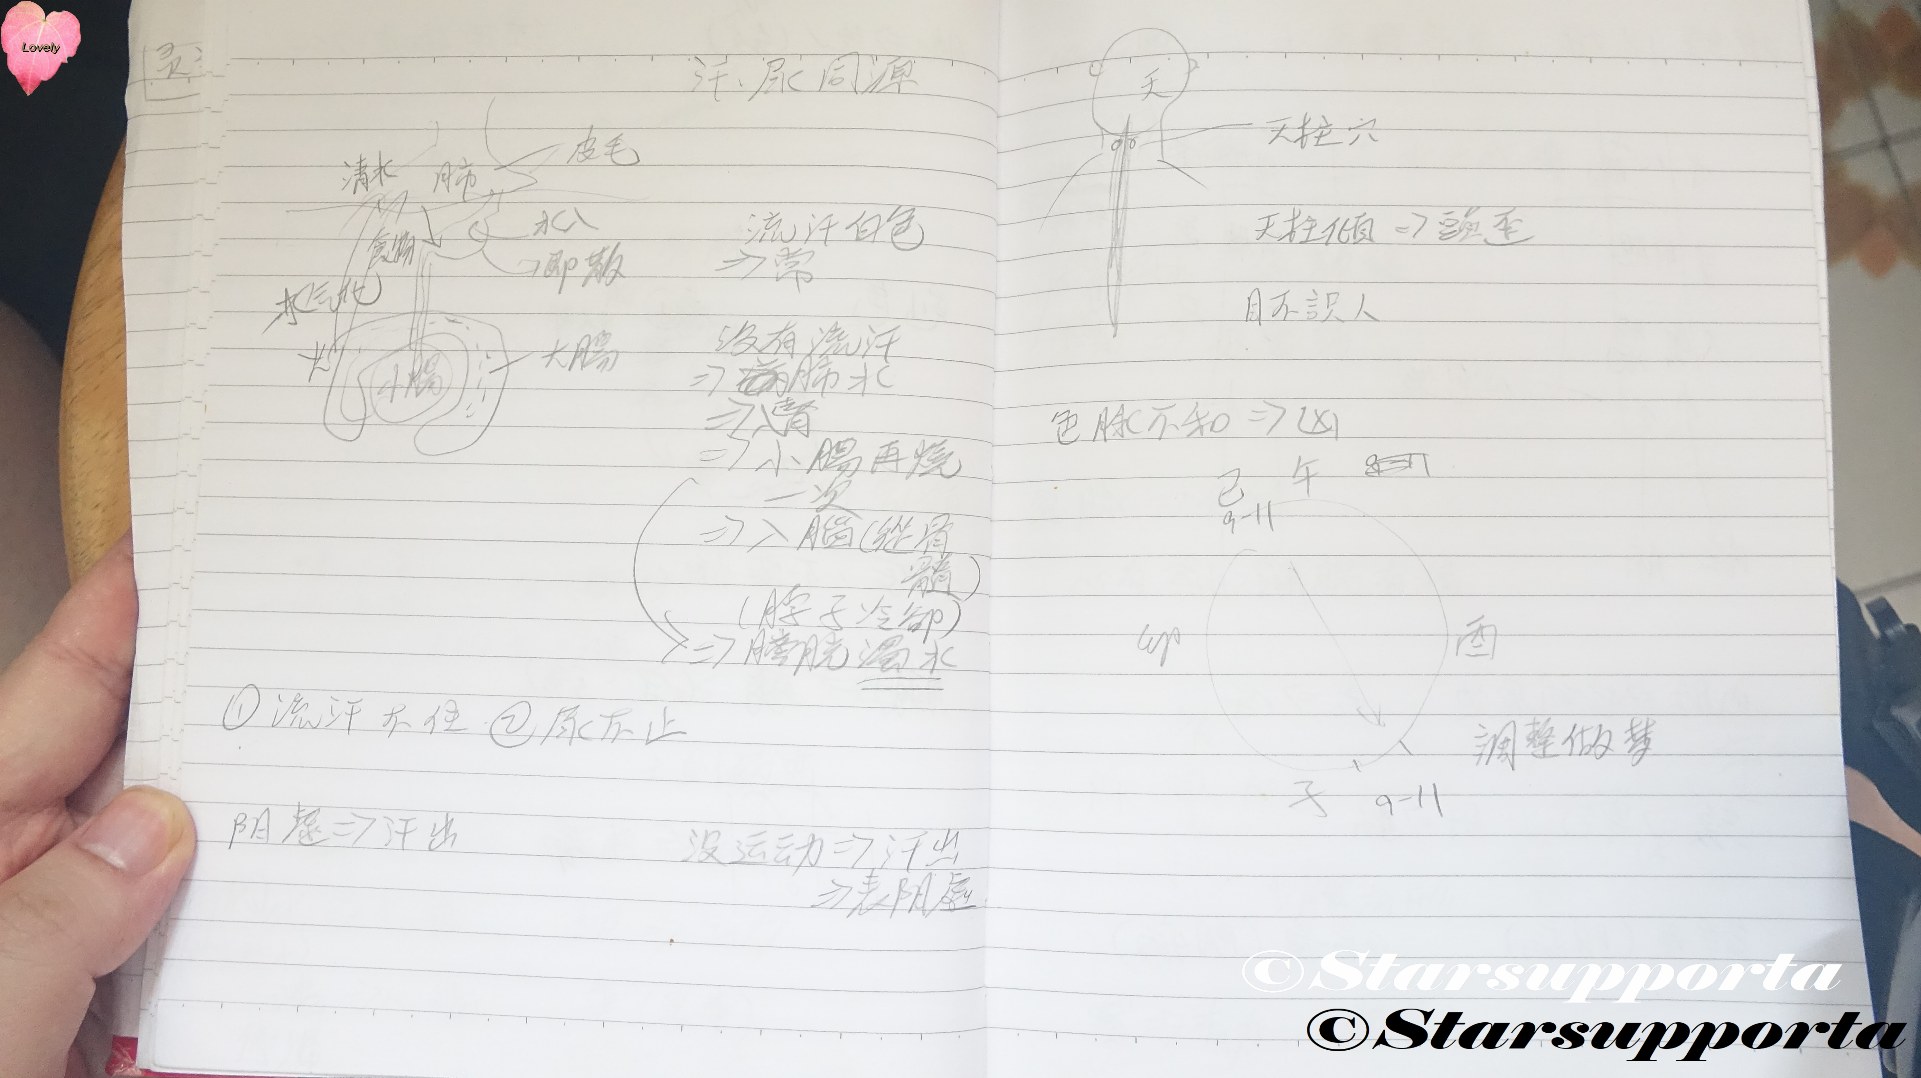 Lovely
汗、尿同源
皮毛
清水
肺
水入
食物
即散
水气化
大腸
小腸
流汗白色
=> 常
没有流汗
=> 肺水
=> 入腎
=> 小腸再燒
一次
=> 入腦(從骨
髓)
(脖子冷卻)
=> 膀胱濁水
① 流汗不住 ② 尿不止
阴虛 => 汗出
没运动 => 汗出
=> 表阴虛
天
天柱穴
天柱傾 => 頭歪
目不識人
色脉不和 => 凶
巳
午
9-11
卯
酉
調整做梦
子
9-11
©Starsupporta
©Starsupporta